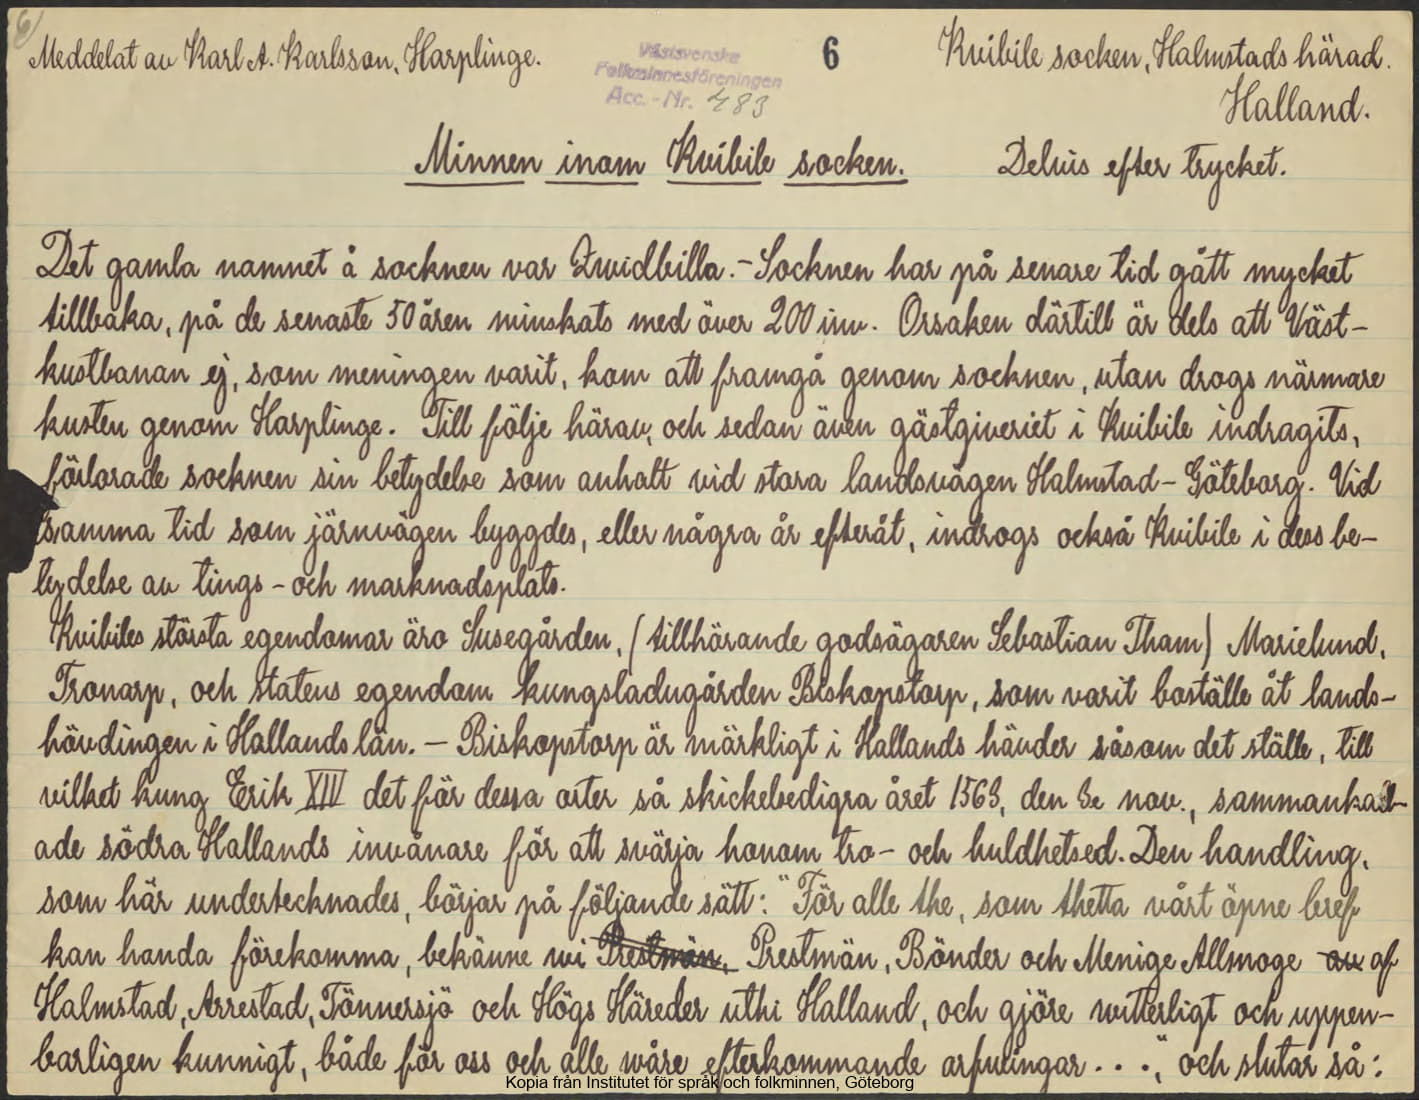 6
Meddelat av Karl A. Karlsson, Harplinge.
Västsvenske
Folkminnesföreningen
Acc. - Nr. 483
6
Kvibile socken, Halmstads härad.
Halland.
Minnen inom Kvibile socken. Delvis efter trycket.
Det gamla namnet å socknen var Qwidbilla. - Socknen har på senare tid gått mycket
tillbaka, på de senaste 50 åren minskats med över 200 inv. Orsaken därtill är dels att Väst-
kustbanan ej, som meningen varit, kom att framgå genom socknen, utan drogs närmare
kusten genom Harplinge. Till följe härav, och sedan även gästgiveriet i Kvibile indragits,
förlorade socknen sin betydelse som anhalt vid stora landsvägen Halmstad - Göteborg. Vid
samma tid som järnvägen byggdes, eller några år efteråt, indrogs också Kvibile i dess be-
tydelse av tings - och marknadsplats.
Kvibiles största egendomar äro Susegården, (tillhörande godsägaren Sebastian Tham) Marielund,
Tronarp, och statens egendom kungsladugården Biskopstorp, som varit boställe åt lands-
hövdingen i Hallands län. - Biskopstorp är märkligt i Hallands hävder såsom det ställe, till
vilket kung Erik XIV det för dessa orter så skickelsedigra året 1563, den nov., sammankall-
ade södra Hallands invånare för att svärja honom tro - och huldhetsed. Den handling,
som här undertecknades, börjar på följande sätt: "För alle the, som thetta vårt öpne bref
kan handa förekomma, bekänne wi Prestmän, Prestmän, Bönder och Menige Allmoge av af
Halmstad, Arrestad, Tönnersjö och Högs Häreder uthi Halland, och gjöre witterligt och uppen-
barligen kunnigt, både för oss och alle wåre efterkommande arfvingar . . . ", och slutar så:
Kopia från Institutet för språk och folkminnen, Göteborg